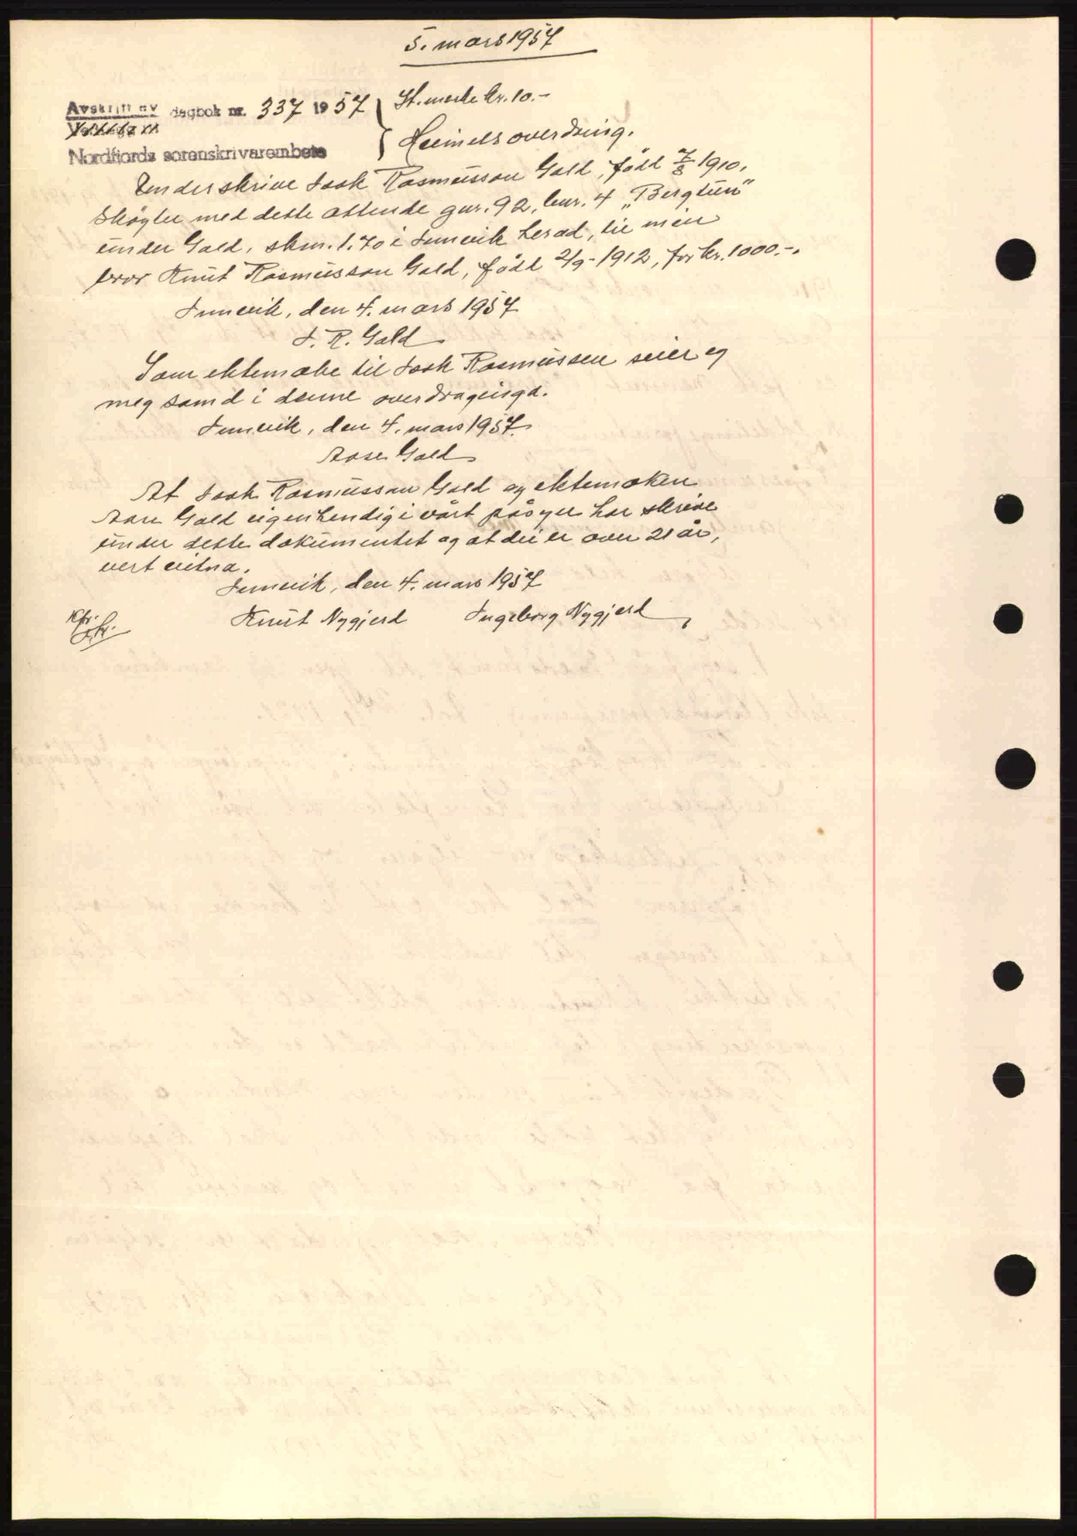 5. mars 1957
Avskrift av dagbok nr. 337 1957
St. merke kr. 10.-
Nordfjords sorenskrivarembete
Heimelsoverdraing.
Underskrive Isak Rasmusson Gald, född 7/8 1910,
skøyter med dette attende gnr. 92, bnr. 4 „Bergtun"
under Gald, skm. 1.70 i Innvik herad, til min
bror Knut Rasmusson Gald, född 2/9-1912, for kr. 1000.-.
Innvik, den 4. mars 1957
I. R. Gald
Som ektemake til Isak Rasmussen seier eg
meg samd i denne overdragings.
Innvik, den 4. mars 1957.
Aase Gald
At Isak Rasmusson Gald og ektemaken
Aase Gald eigenhendig i vårt påsyn har skrive
under dette dokumentet og at dei er over 21 år,
vert vitna.
Innvik, den 4. mars 1957
Knut Nygjerd Ingeborg Nygjerd